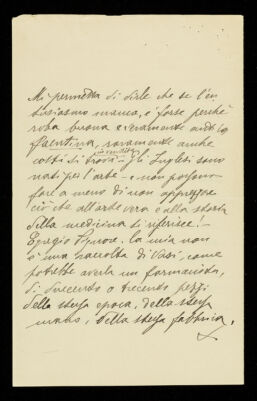 Mi permetta di dirle che se l'en
tusiasmo manca, è forse perchè
roba buona e veramente antica
faentina, raramente anche
in vendita
si trova - Gli Inglesi sono
nati per l'arte - e non posson
fare a meno di non apprezzare
ciò che all'arte vera e alla storia
della medicina si riferisce! -
Egregio Signore. La mia non
è una raccolta di Vasi, come
potrebbe averla un farmacista,
di duecento o trecento pezzi
della stessa epoca, della stessa
mano, della stessa fabbrica.